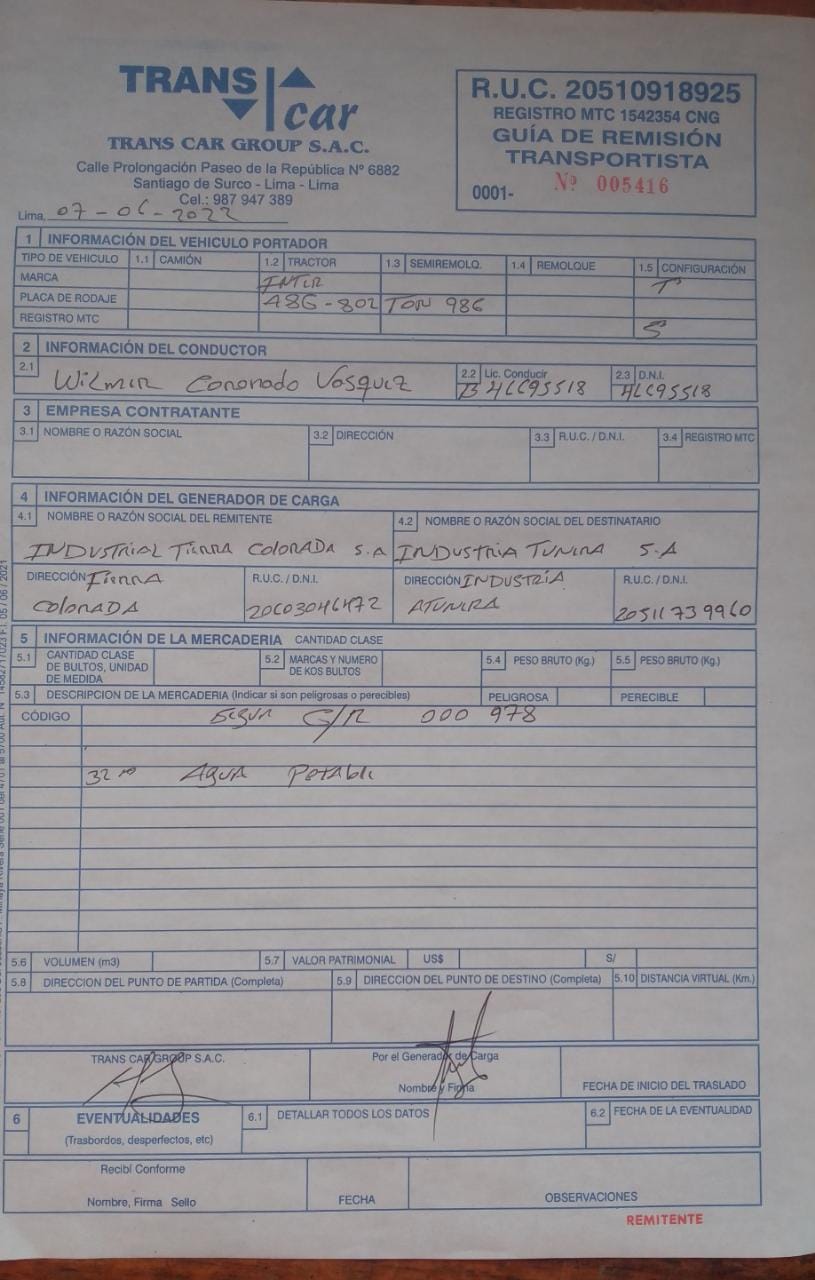 TRANS car
TRANS CAR GROUP S.A.C.
Calle Prolongación Paseo de la República Nº 6882
Santiago de Surco - Lima - Lima
Cel.: 987 947 389
Lima, 07 - 06 - 2022
R.U.C. 20510918925
REGISTRO MTC 1542354 CNG
GUÍA DE REMISIÓN
TRANSPORTISTA
0001- Nº 005416
1 INFORMACIÓN DEL VEHICULO PORTADOR
TIPO DE VEHICULO 1.1 CAMIÓN 1.2 TRACTOR 1.3 SEMIREMOLQ. 1.4 REMOLQUE 1.5 CONFIGURACIÓN
MARCA INTER T
PLACA DE RODAJE TON 986
REGISTRO MTC S
2 INFORMACIÓN DEL CONDUCTOR
2.1 Wilmer Coronado Vasquez 2.2 Lic. Conducir 2.3 D.N.I.
3 EMPRESA CONTRATANTE
3.1 NOMBRE O RAZÓN SOCIAL 3.2 DIRECCIÓN 3.3 R.U.C. / D.N.I. 3.4 REGISTRO MTC
4 INFORMACIÓN DEL GENERADOR DE CARGA
4.1 NOMBRE O RAZÓN SOCIAL DEL REMITENTE 4.2 NOMBRE O RAZÓN SOCIAL DEL DESTINATARIO
INDUSTRIAL Tierra COLORADA S.A INDUSTRIA S.A
DIRECCIÓN Tierra R.U.C. / D.N.I. DIRECCIÓN INDUSTRIA R.U.C. / D.N.I.
COLORADA 20511739960
5 INFORMACIÓN DE LA MERCADERIA CANTIDAD CLASE
5.1 CANTIDAD CLASE DE BULTOS, UNIDAD DE MEDIDA 5.2 MARCAS Y NUMERO DE KOS BULTOS 5.4 PESO BRUTO (Kg.) 5.5 PESO BRUTO (Kg.)
5.3 DESCRIPCION DE LA MERCADERIA (Indicar si son peligrosas o perecibles) PELIGROSA PERECIBLE
CÓDIGO Segun G/R 000 978
32 AGUA Potable
5.6 VOLUMEN (m3) 5.7 VALOR PATRIMONIAL US$ S/
5.8 DIRECCION DEL PUNTO DE PARTIDA (Completa) 5.9 DIRECCION DEL PUNTO DE DESTINO (Completa) 5.10 DISTANCIA VIRTUAL (Km.)
TRANS CAR GROUP S.A.C. Por el Generador de Carga
Nombre y Firma FECHA DE INICIO DEL TRASLADO
6 EVENTUALIDADES 6.1 DETALLAR TODOS LOS DATOS 6.2 FECHA DE LA EVENTUALIDAD
(Trasbordos, desperfectos, etc)
Recibí Conforme
Nombre, Firma Sello FECHA OBSERVACIONES
REMITENTE